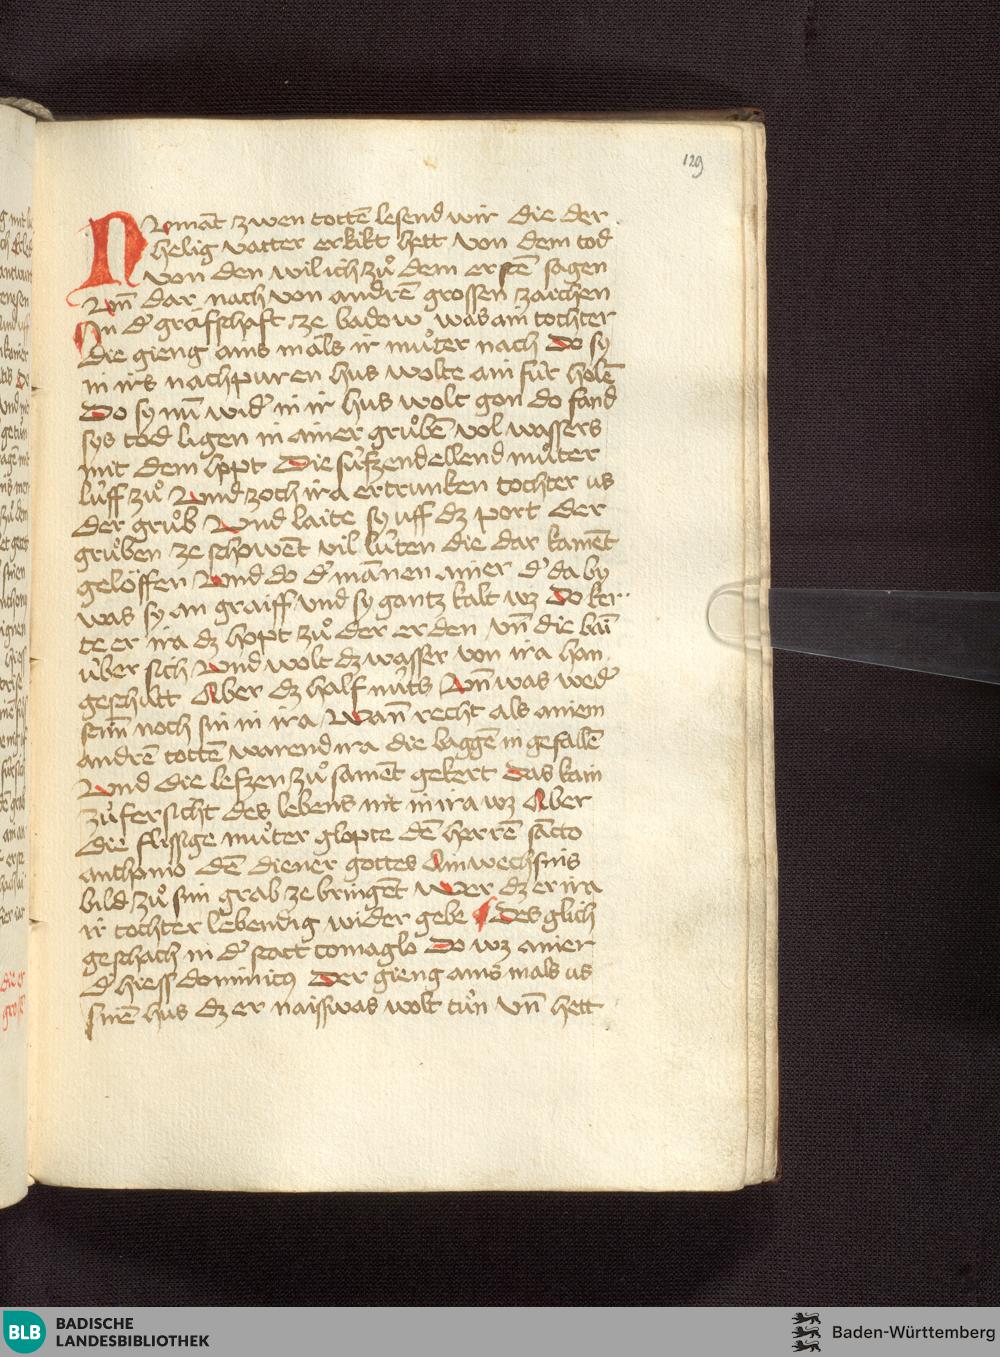 129
Nvn̄ māt zwen tottē lesend wir die der
helig vatter erkikt hett von dem tod
von den wil ich zů dem erstē sagen
Vn̄ dar nach von andrē grossen zaichen
In d' grăfschaft ze badow was ain tochter
die gieng ains măls ir můter nach Do sy
in irs nachpuren hus wolte ain fúr holē
Do sy nu̅ wid' in ir hus wolt gon do fand
sys tod ligen in ainer grůbē vol wassers
mit dem hppt Die súfzend ellend můter
luff zů Vnd zoch ira ertrunken tochter us
der grůb Vnd laite sy uff dz port der
grůben ze schowēt vil lúten die dar kamēt
gelŏffen Vnd do d' mānen ainer d' da by
was sy an graiff vnd sy gantz kalt wz Do ker
te er ira dz hopt zů der erden vn̄ die bai̅
úber sich Vnd wolt dz wasser von ira han
geschút Aber dz half núts Vn̄ was wed'
stim̄ noch sin in ira Wan̄ recht als ainem
andrē tottē warend ira die baggē in gefallē
Vnd die lefzen zů samēt gekert Das kain
zůfersicht des lebens nit in ira wz Aber
die flissige můter glopte dē herrē sācto
anthonio dē diener gottes Ain wechsins
bild zů sim grab ze bringēt Wer dz er ira
ir tochter lebendig wider gebe Des glich
geschach in d' statt comaglo Do wz ainer
d' hiess dominicus Der gieng ains mals us
sinē hus dz er naisswas wolt tůn vn̄ hett
BLB BADISCHE
LANDESBIBLIOTHEK
Baden-Württemberg